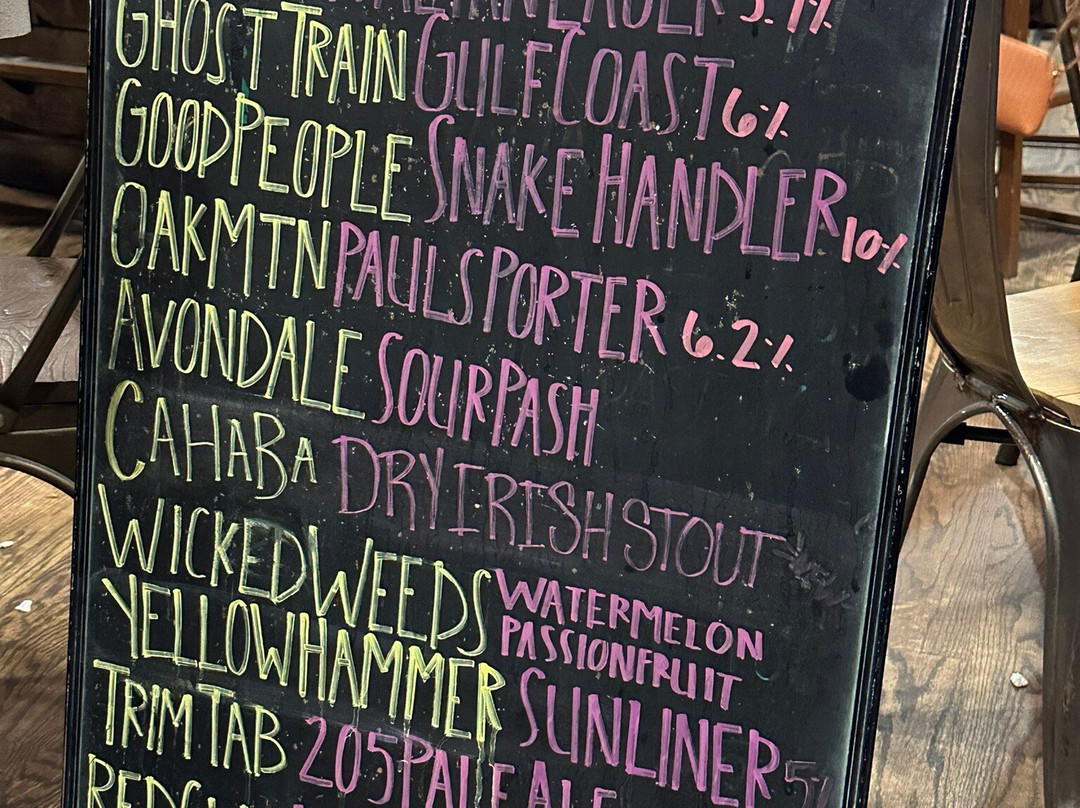 LAGER 5.1%
GHOST TRAIN GULF COAST 6%
GOOD PEOPLE SNAKE HANDLER 10%
OAK MTN PAULS PORTER 6.2%
AVONDALE SOUR PASH
CAHABA DRY IRISH STOUT
WICKED WEEDS WATERMELON
PASSIONFRUIT
YELLOWHAMMER SUNLINER 5%
TRIM TAB 205 PALE ALE